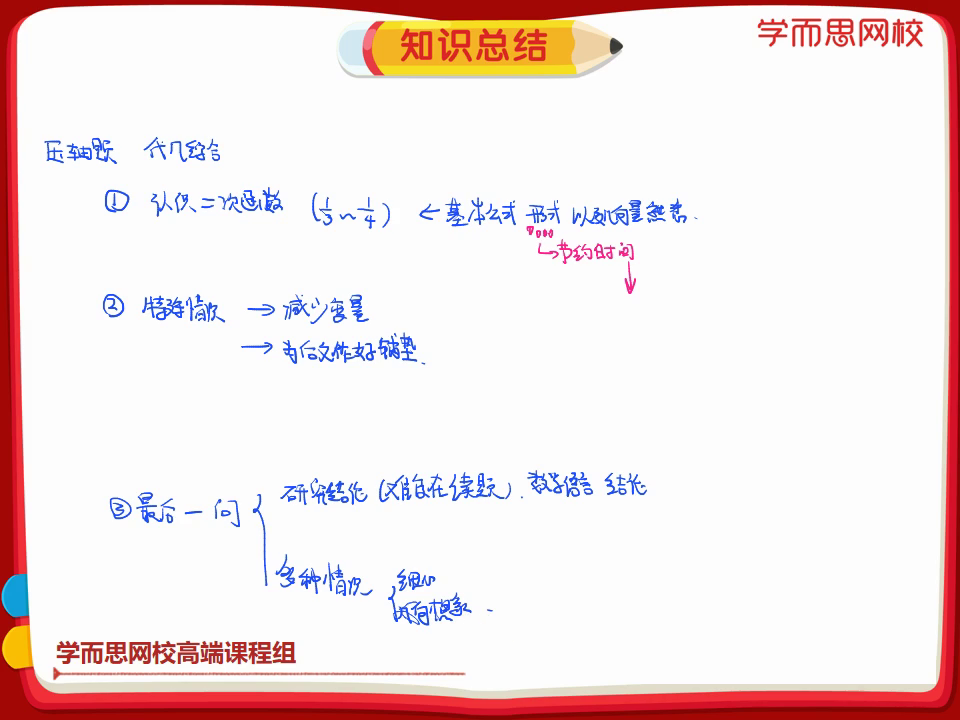 知识总结
学而思网校
压轴题 代几综合
① 认识二次函数 (1/3～1/4) ← 基本公式 形式 以到向量熟悉.
↳节约时间
② 特殊情况 → 减少变量
→ 为后文作好铺垫.
③最后一问
研究结论(难点在读题). 数学语言 结论
多种情况
细心
想象.
学而思网校高端课程组